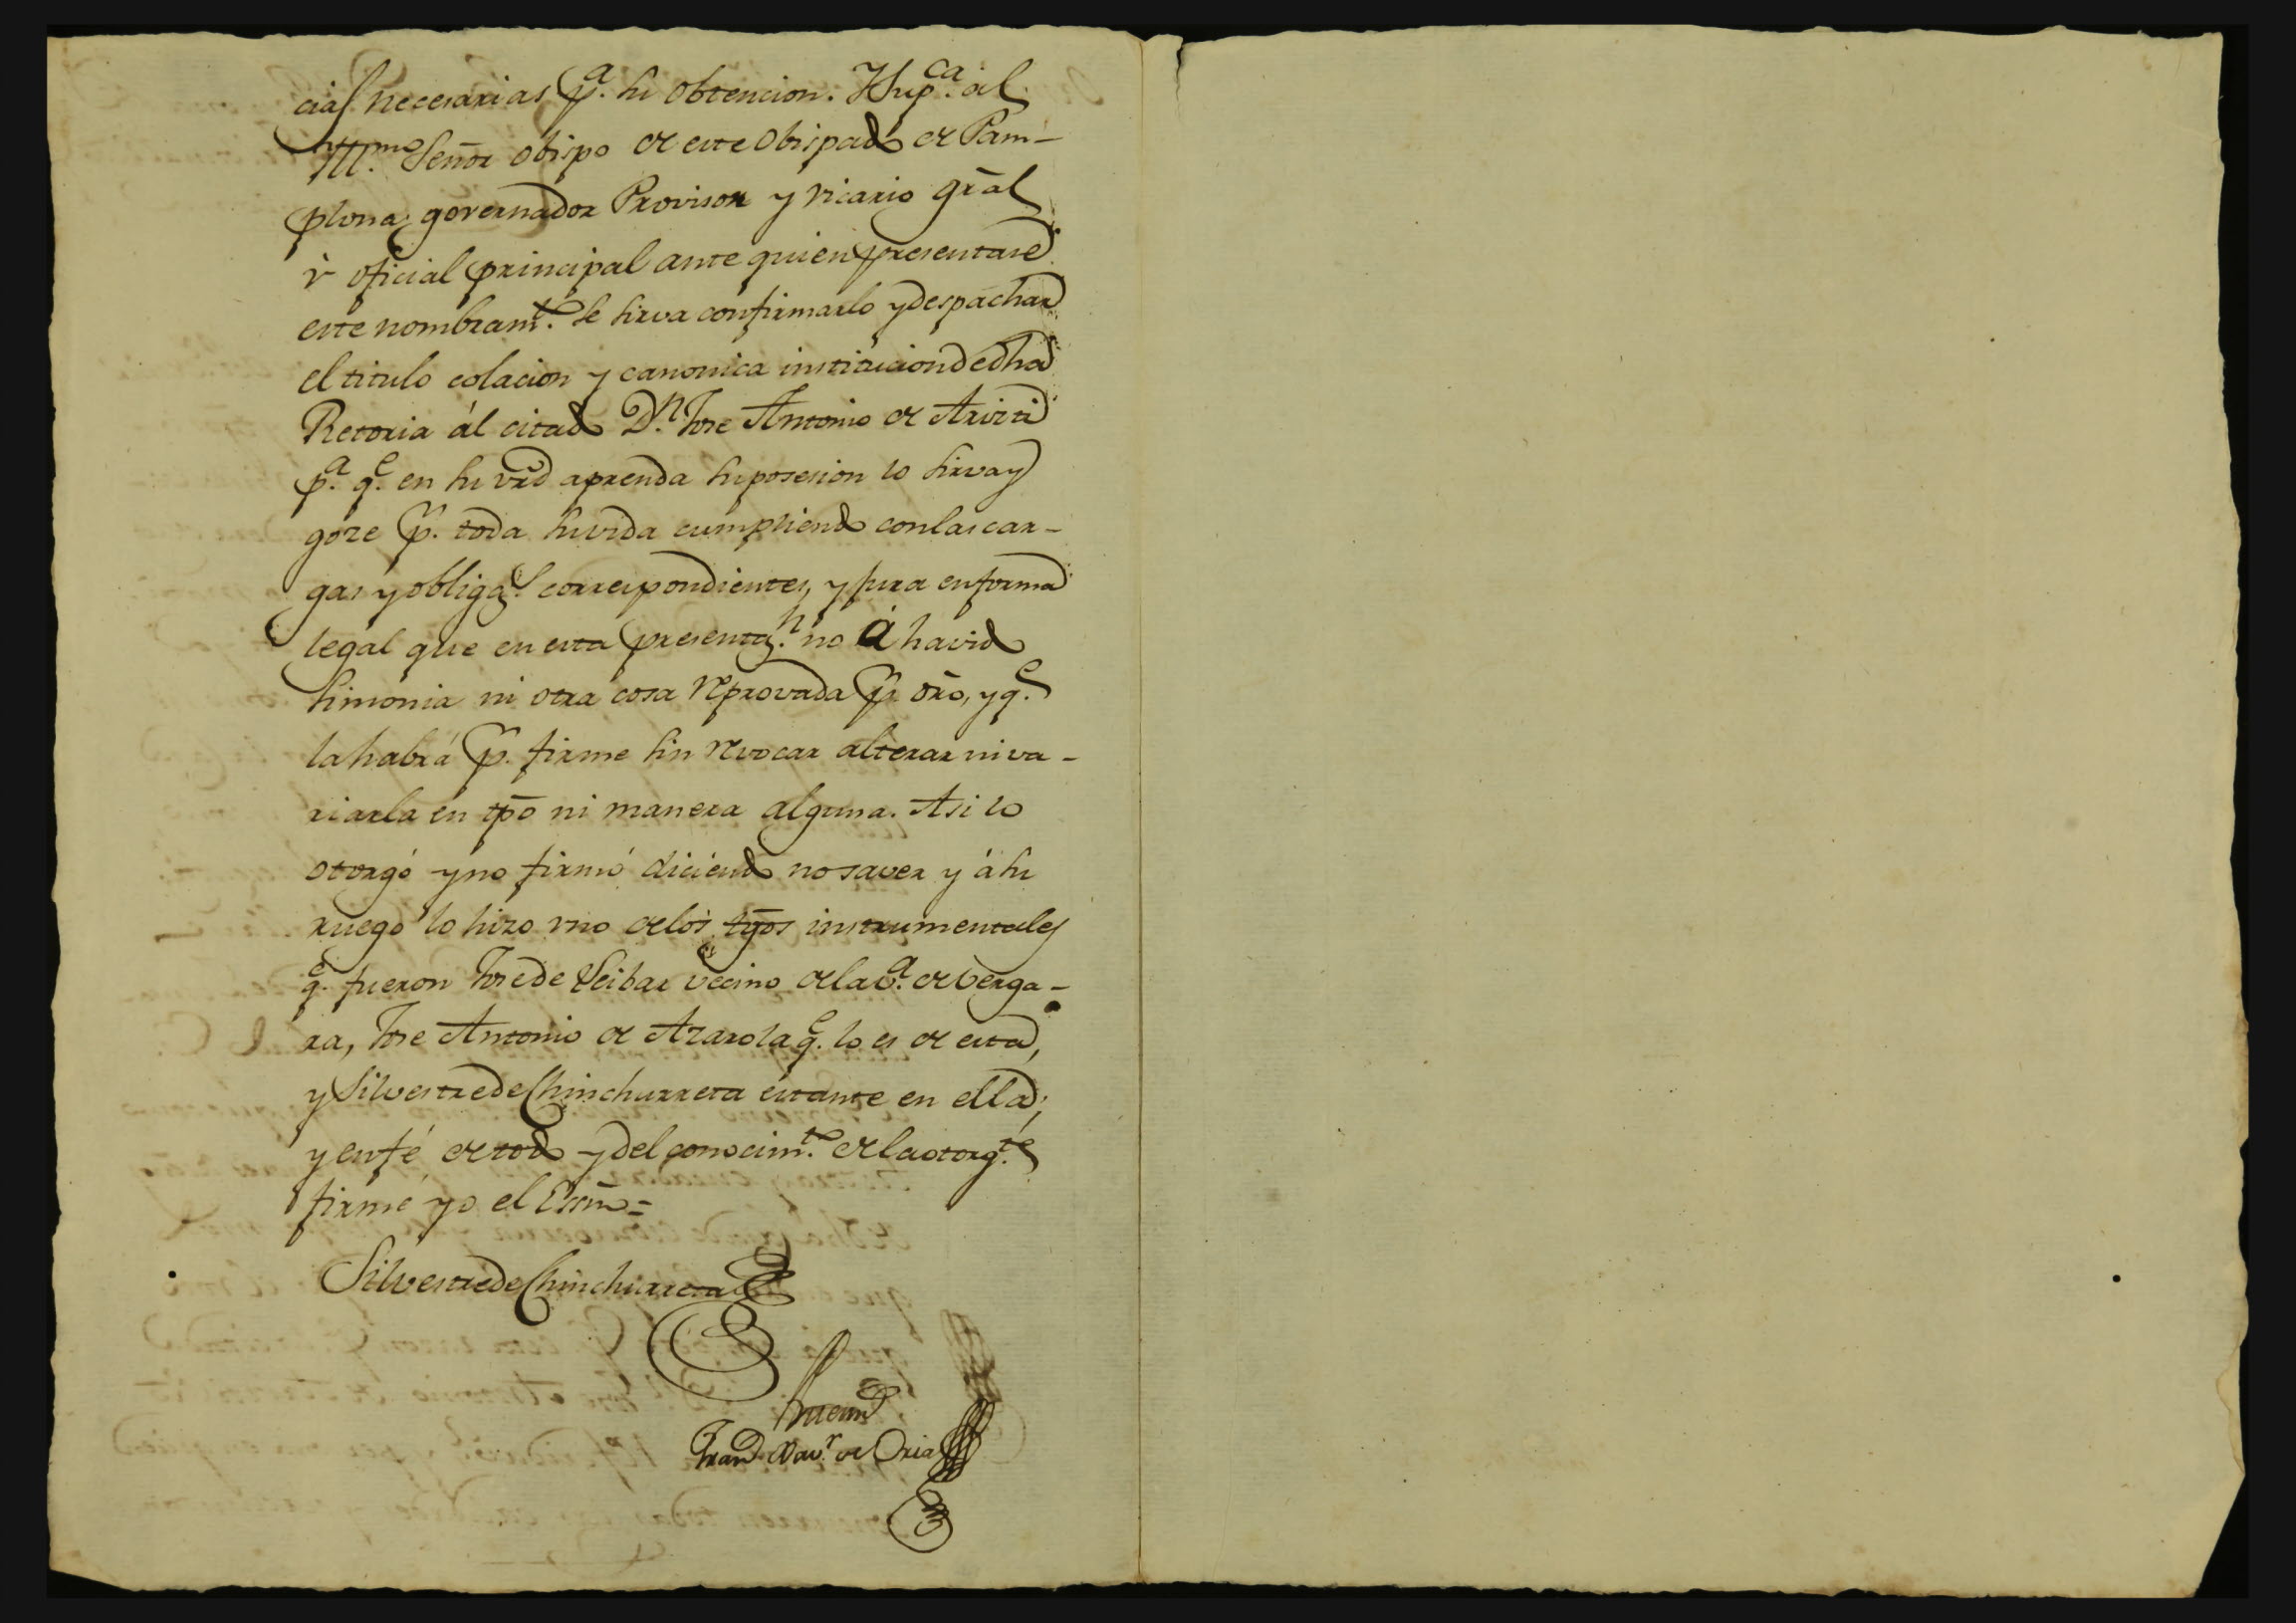 cias necesarias p.a su obtencion. Y Sup.ca al
Ill.mo Señor Obispo de este Obispado de Pam-
plona, governador Provisor y vicario grãl
ù oficial principal ante quien presentare
este nombram.to se sirva confirmarlo y despachar
el titulo colacion y canonica institucion de dha
Retoria ál citado D.n Jose Antonio de Arizti
p.a q.e en su vrd aprenda su posesion lo sirva y
goze p.r toda su vida cumpliendo con las car-
gas y obligaz.s correspondientes, y jura en forma
legal que en esta presentaz.n no á havido
simonia ni otra cosa reprovada p.r dro, y q.e
la habrá p.r firme sin revocar alterar ni va-
riarla en tpõ ni manera alguna. Asi lo
otorgó y no firmó diciendo no saver y á su
ruego lo hizo vno de los tgõs instrumentales
q.e fueron Jose de Leibar vecino de la v.a de Verga-
ra, Jose Antonio de Azarola q.e lo es de esta,
y Silvestre de Chinchurreta estante en ella;
y en fé de todo y del conocim.to de la otorg.te
firmé yo el Essnõ =
Silvestre de Chinchurreta
Antemi
Fran.co Xav.r de Oria